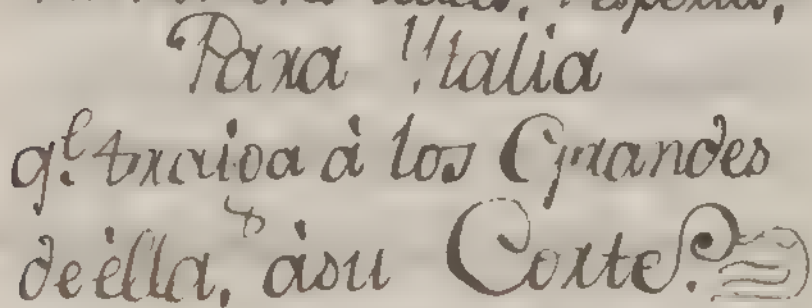 Para Ytalia
q.e traiga à los Grandes
de èlla, àsu Corte.